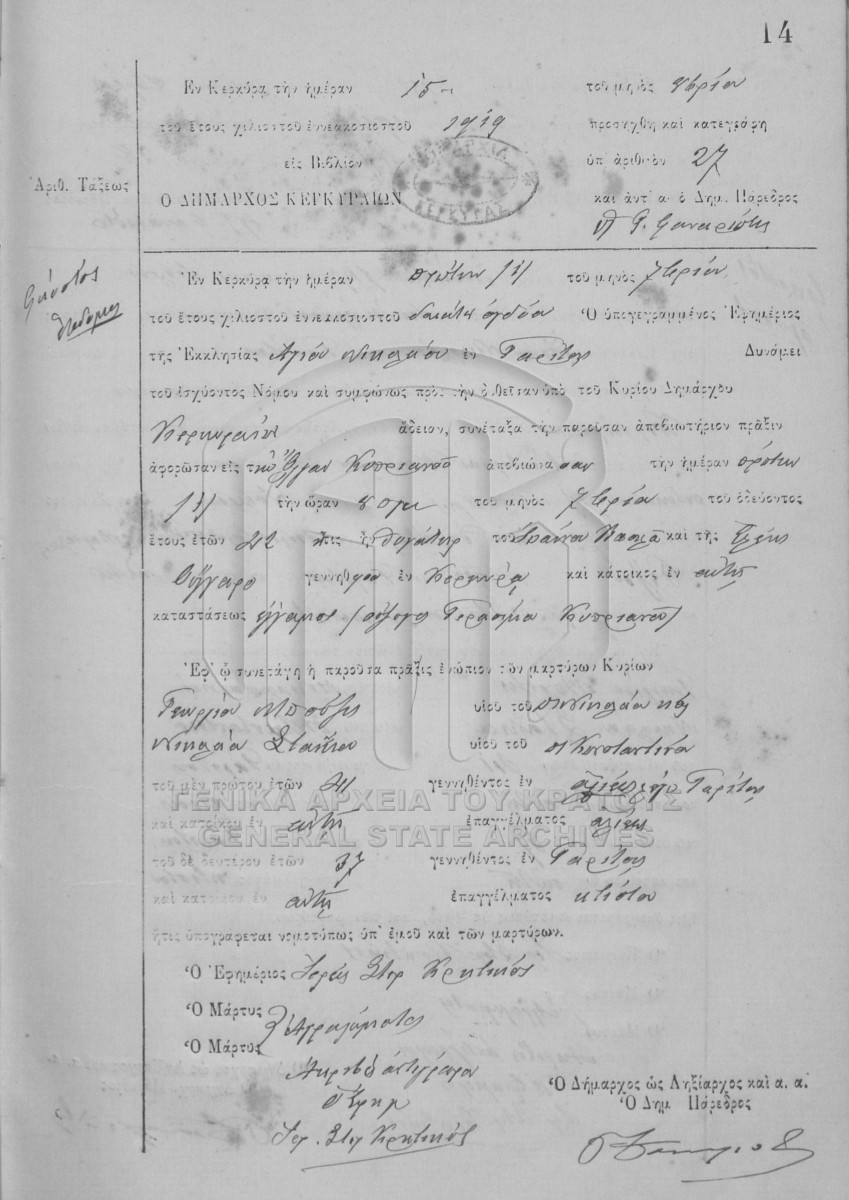 14
Ἐν Κερκύρᾳ τὴν ἡμέραν 15 τοῦ μηνὸς 8βρίου
τοῦ ἔτους χιλιοστοῦ ἐννεακοσιοστοῦ 1919 προσήχθη καὶ κατεγράφη
εἰς Βιβλίον ὑπ' ἀριθμὸν 27
Ἀριθ. Τάξεως
Ο ΔΗΜΑΡΧΟΣ ΚΕΡΚΥΡΑΙΩΝ καὶ ἀντ' αὐ ὁ Δημ. Πάρεδρος
ΚΕΡΚΥΡΑΣ
Ἐν Κερκύρᾳ τὴν ἡμέραν πρώτην /1/ τοῦ μηνὸς 7βρίου
τοῦ ἔτους χιλιοστοῦ ἐννεακοσιοστοῦ δεκάτου ὀγδόου Ὁ ὑπογεγραμμένος Ἐφημέριος
τῆς Ἐκκλησίας Ἁγίου Νικολάου ἐν Γαρίτσῃ Δυνάμει
τοῦ ἰσχύοντος Νόμου καὶ συμφώνως πρὸς τὴν δοθεῖσαν ὑπὸ τοῦ Κυρίου Δημάρχου
Κερκυραίων ἄδειαν, συνέταξα τὴν παροῦσαν ἀποβιωτήριον πρᾶξιν
ἀφορῶσαν εἰς τὴν Κυπριανοῦ ἀποβιώσασαν τὴν ἡμέραν πρώτην
/1/ τὴν ὥραν 8 τοῦ μηνὸς 7βρίου τοῦ ὁδεύοντος
ἔτους ἐτῶν 42 ἥτις ἦν θυγάτηρ τοῦ καὶ τῆς Ἑλένης
γεννηθεῖσα ἐν Κερκύρᾳ καὶ κάτοικος ἐν αὐτῇ
καταστάσεως ἔγγαμος /σύζυγος Γερασίμου Κυπριανοῦ/
Ἐφ' ᾧ συνετάγη ἡ παροῦσα πρᾶξις ἐνώπιον τῶν μαρτύρων Κυρίων
Γεωργίου Μπούζη υἱοῦ τοῦ Νικολάου καὶ
Νικολάου υἱοῦ τοῦ Κωνσταντίνου
τοῦ μὲν πρώτου ἐτῶν 41 γεννηθέντος ἐν Γαρίτσῃ
καὶ κατοίκου ἐν αὐτῇ ἐπαγγέλματος ἁλιέως
τοῦ δὲ δευτέρου ἐτῶν 37 γεννηθέντος ἐν Γαρίτσῃ
καὶ κατοίκου ἐν αὐτῇ ἐπαγγέλματος κτίστου
ἥτις ὑπογράφεται νομοτύπως ὑπ' ἐμοῦ καὶ τῶν μαρτύρων.
Ὁ Ἐφημέριος Ἱερεὺς Σπυρ Κρητικός
Ὁ Μάρτυς
Ὁ Μάρτυς
Ἀγράμματοι
Ἀκριβὲς ἀντίγραφον
Ὁ Ἐφημ
Ἱερ. Σπυρ Κρητικός
Ὁ Δήμαρχος ὡς Ληξίαρχος καὶ α. α.
Ὁ Δημ Πάρεδρος
ΓΕΝΙΚΑ ΑΡΧΕΙΑ ΤΟΥ ΚΡΑΤΟΥΣ
GENERAL STATE ARCHIVES